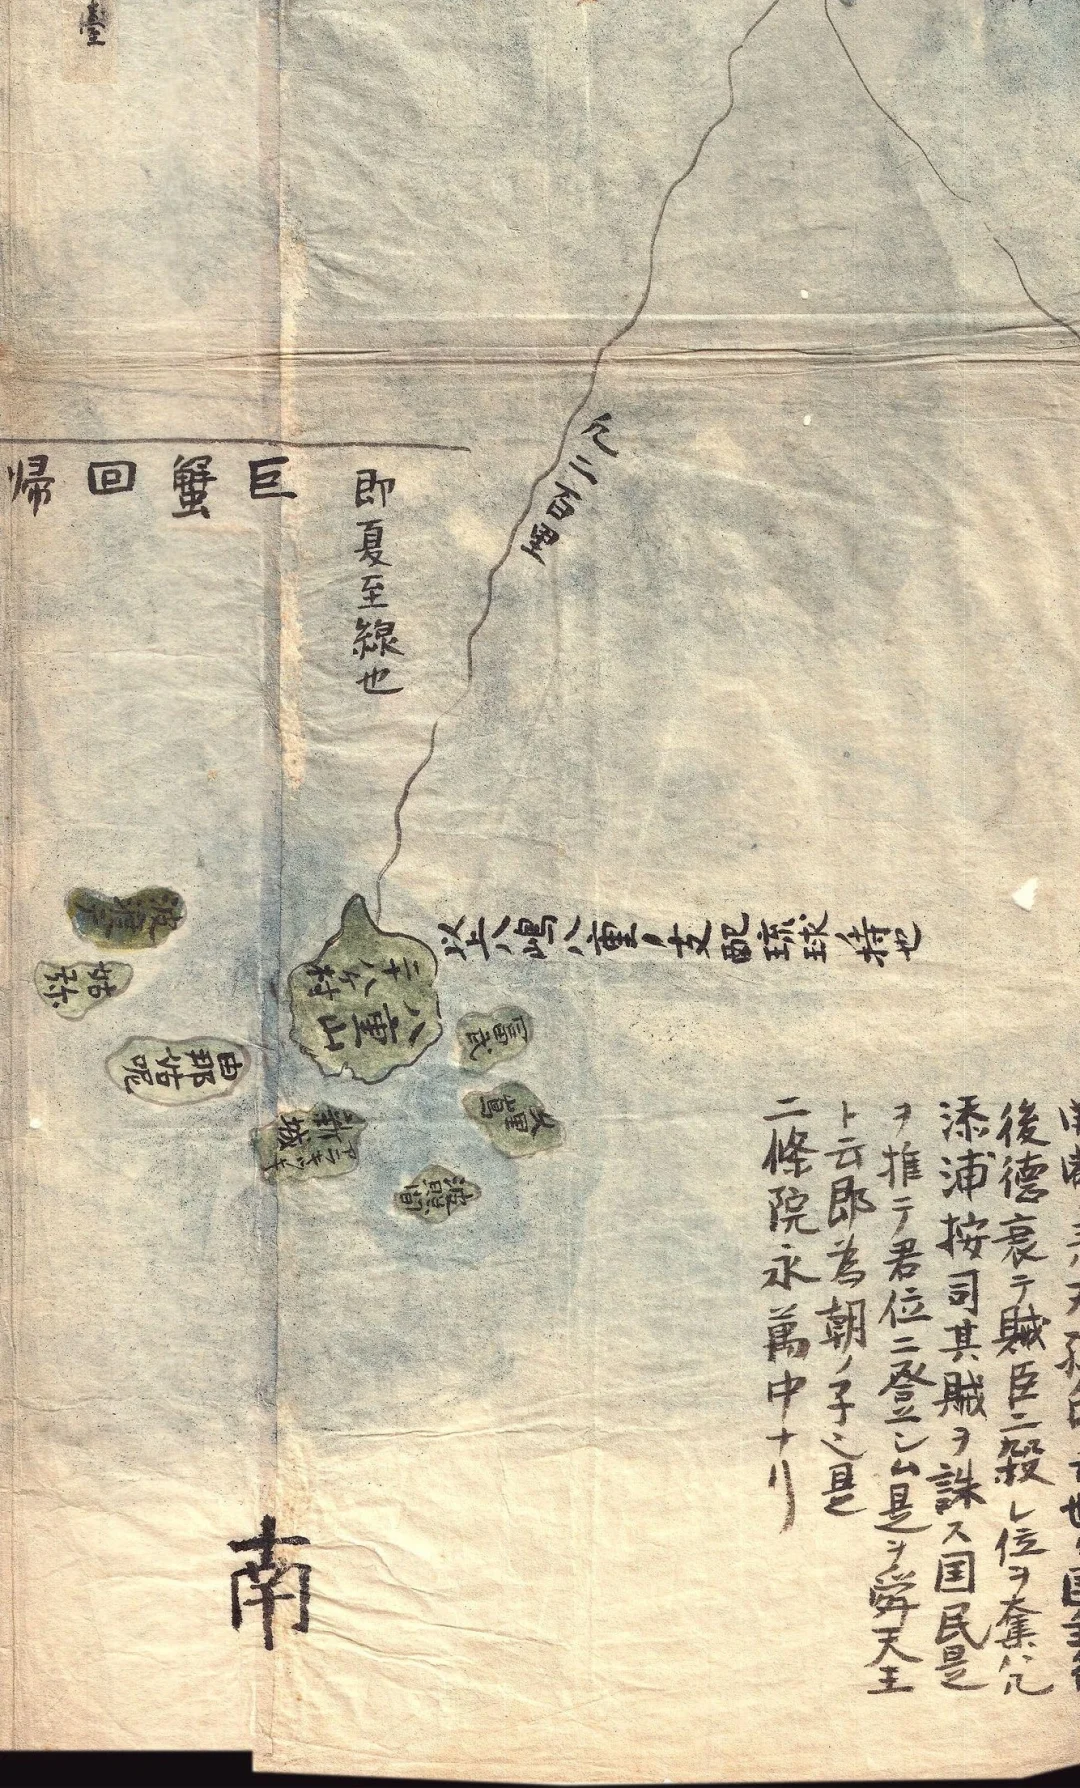 臺
巨蟹回帰
即夏至線也
凡二百里
以上八嶋八重ノ支配琉球ノ持也
八重山
二十八ケ村
波渡
姑弥
由那姑呢
新城
アラギシキ
波照間
冨武
後德衰テ賊臣ニ殺レ位ヲ奪
添浦按司其賊ヲ誅ス国民是
ヲ推テ君位ニ登シム是ヲ舜天王
ト云即為朝ノ子也是
二條院永萬中ナリ
南